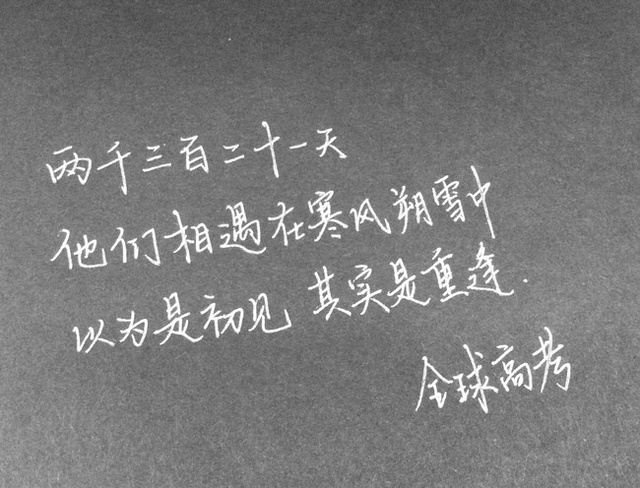 两千三百二十一天
他们相遇在寒风朔雪中
以为是初见 其实是重逢.
全球高考